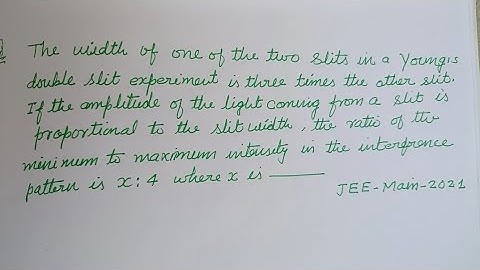 The width of one of the two slits in a Young's
double slit experiment is three times the other slit.
If the amplitude of the light coming from a slit is
proportional to the slit width, the ratio of the
minimum to maximum intensity in the interference
pattern is x:4 where x is ———
JEE-Main-2021